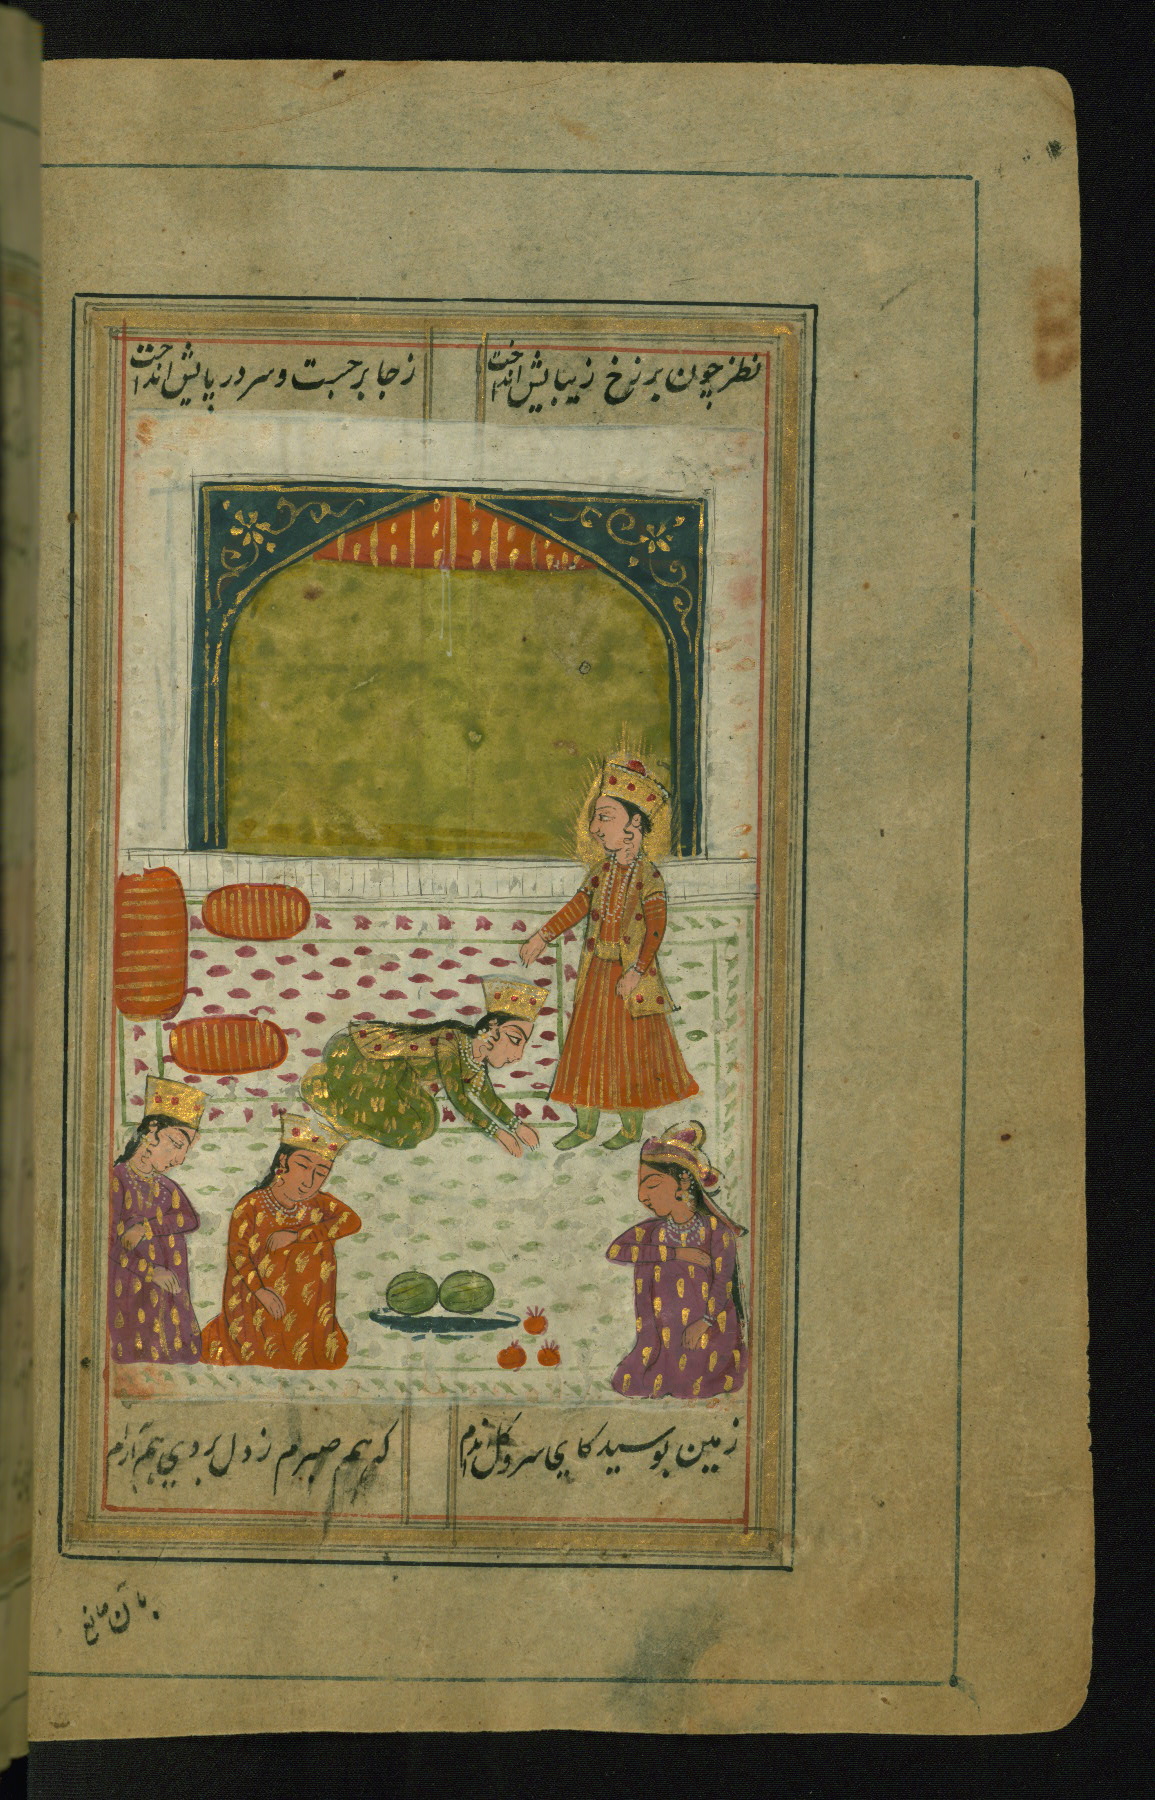 نظر چون بر رخ زیبایش انداخت
ز جا برجست و سر در پایش انداخت
زمین بوسید کای سرو گل اندام
که هم صبرم ز دل بردی هم آرام
بآن صانع